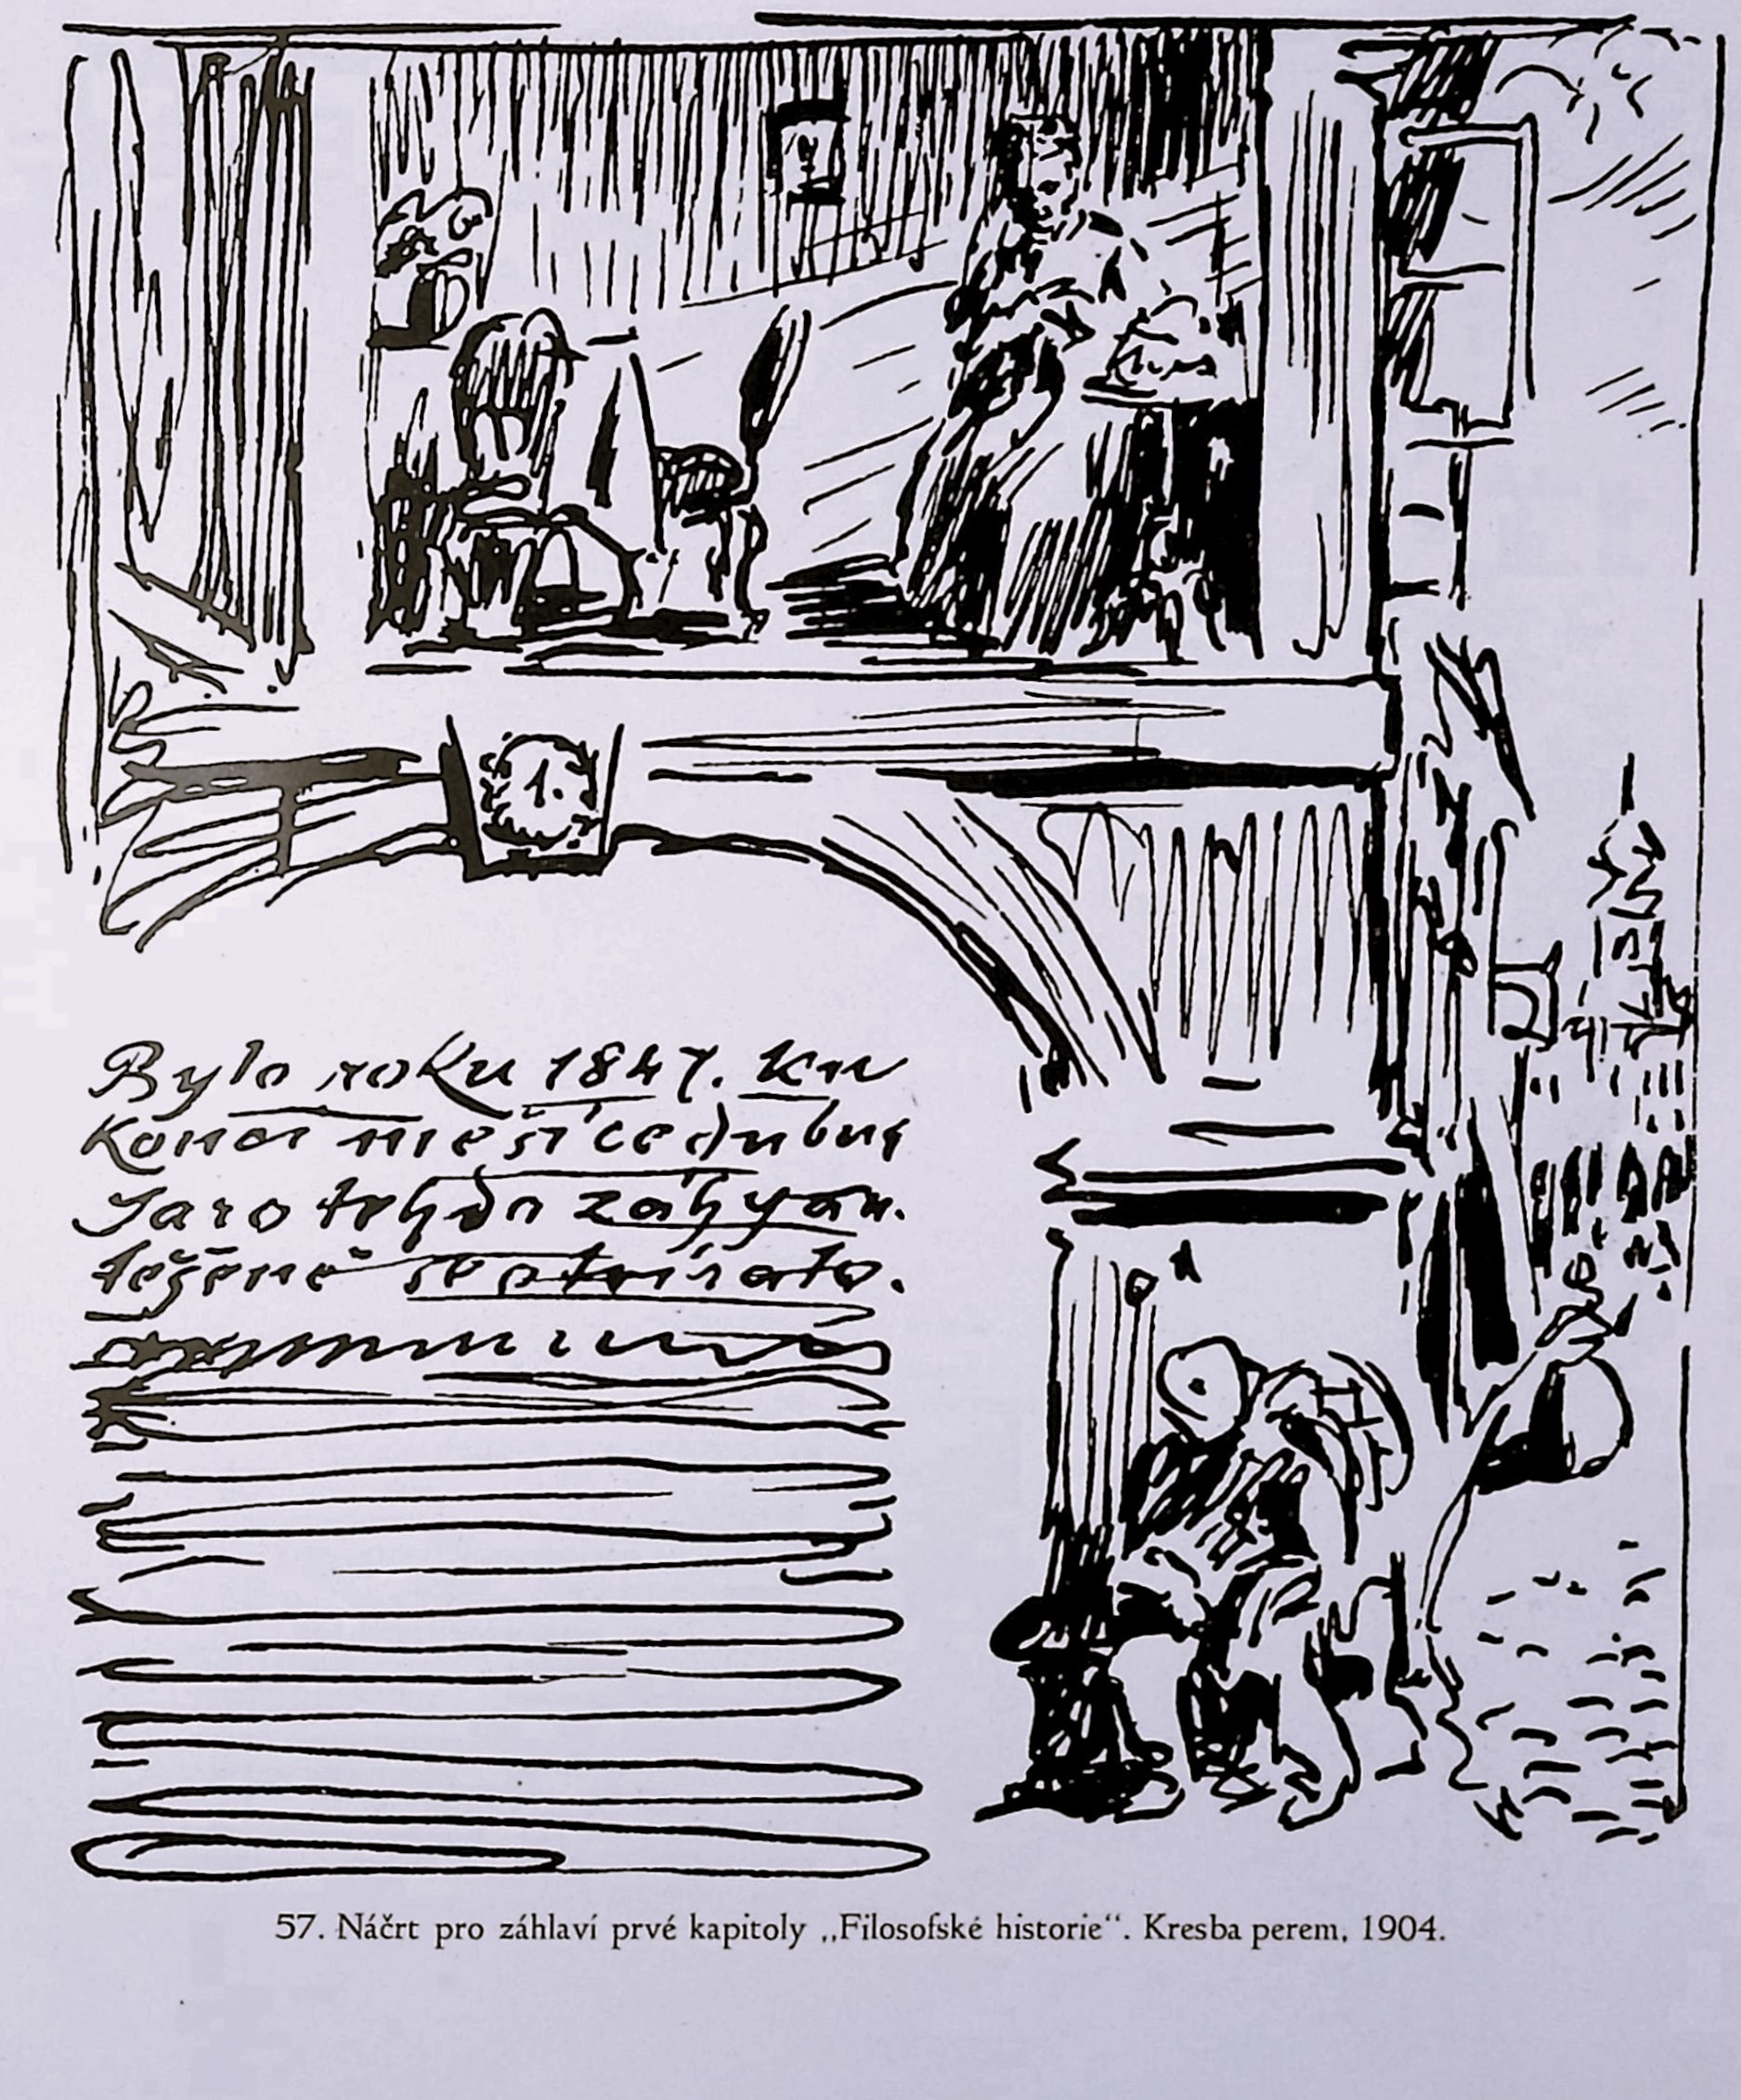 1.
Bylo roku 1847. Ku
konci měsíce dubna
Jaro tehda záhy a u-
těšeně se otvíralo.
57. Náčrt pro záhlaví prvé kapitoly „Filosofské historie“. Kresba perem, 1904.